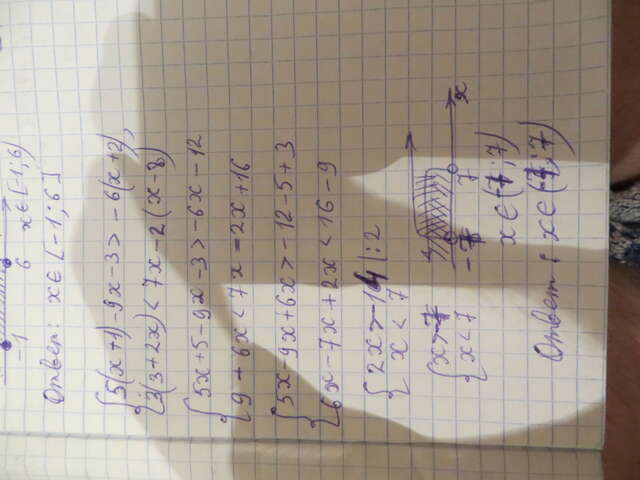 -1 6 x∈[-1;6)
Ответ: x∈[-1;6]
5(x+1)-9x-3>-6(x+2),
3(3+2x)<7x-2(x-8)
5x+5-9x-3>-6x-12
9+6x<7x-2x+16
5x-9x+6x>-12-5+3
6x-7x+2x<16-9
2x>-14|:2
x<7
x>-7
x<7
-7 7 x
x∈(-7;7)
Ответ: x∈(-7;7)